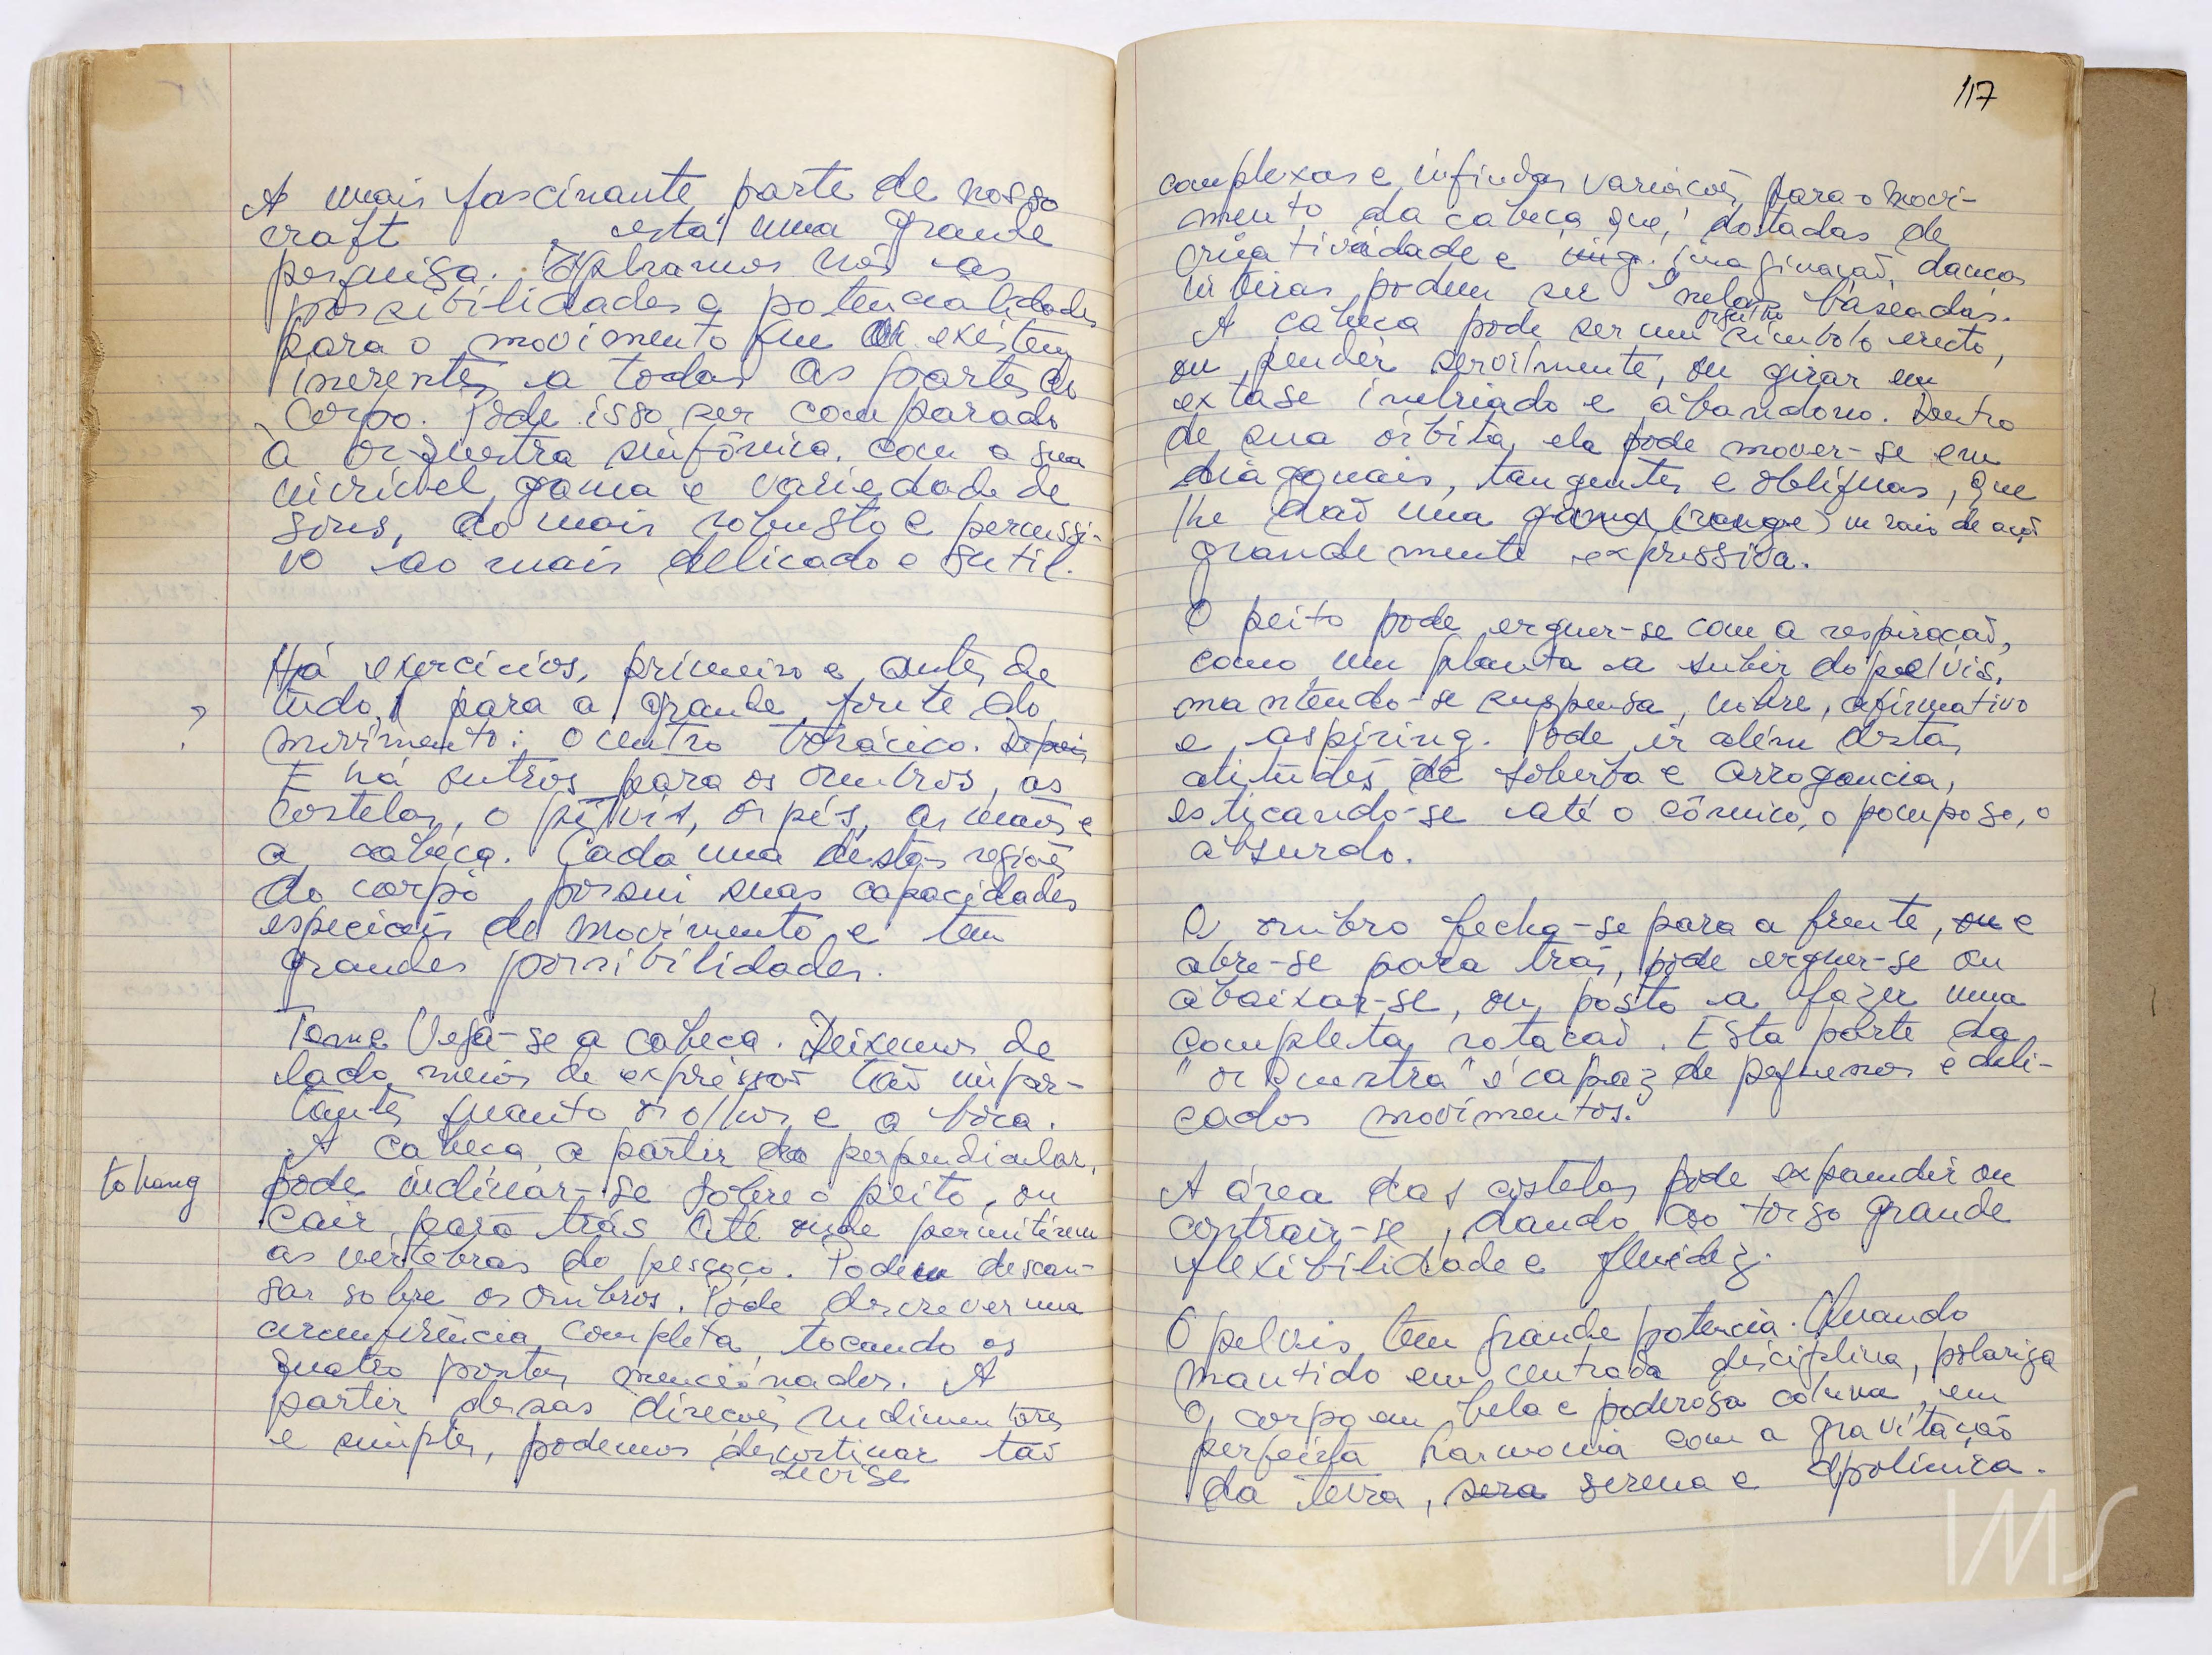 A mais fascinante parte de nosso
craft está uma grande
pesquisa. Exploramos nós as
possibilidades e potencialidades
para o movimento que aí existem
inerentes a todas as partes do
corpo. Pode isso ser comparado
à orquestra sinfônica, com a sua
incrível gama e variedade de
sons, do mais robusto e percussi-
vo ao mais delicado e sutil.
Há exercícios, primeiro e antes de
tudo, para a grande fonte do
?
movimento: o centro torácico. Depois
E há outros para os ombros, as
costelas, o pélvis, os pés, as mãos e
a cabeça. Cada uma destas regiões
do corpo possui suas capacidades
especiais de movimento e tem
grandes possibilidades.
Tome Veja-se a cabeça. Deixemos de
lado meios de expressão tão impor-
tantes quanto os olhos e a boca.
A cabeça, a partir da perpendicular,
to hang
pode inclinar-se sôbre o peito, ou
cair para trás até onde permitirem
as vértebras do pescoço. Podem descan-
sar sobre os ombros. Pode descrever uma
circunferência completa, tocando os
quatro pontos mencionados. A
partir dessas direções rudimentares
e simples, podemos descortinar tão
devise
117
complexas e infindas variações para o movi-
mento da cabeça que, dotadas de
criatividade e imag. imaginação, danças
inteiras podem ser nelas baseadas.
orgulho
A cabeça pode ser um símbolo erecto,
ou pender servilmente, ou girar em
extase inebriado e abandono. Dentro
de sua órbita, ela pode mover-se em
diagonais, tangentes e oblíquas, que
lhe dão uma gama (range) um raio de ação
grandemente expressiva.
O peito pode erguer-se com a respiração,
como um planta a subir do pelvis,
mantendo-se suspensa, nobre, afirmativo
e aspiring. Pode ir além destas
atitudes de soberba e arrogancia,
esticando-se até o cômico, o pomposo, o
absurdo.
O ombro fecha-se para a frente, ou e
abre-se para trás, pode erguer-se ou
abaixar-se, ou, posto a fazer uma
completa rotação. Esta parte da
"orquestra" é capaz de pequenos e deli-
cados movimentos.
A área das costelas pode expandir ou
contrair-se, dando ao torso grande
flexibilidade e fluidez.
O pelvis tem grande potencia. Quando
mantido em centrada disciplina, polariza
o corpo em bela e poderosa coluna, em
perfeita harmonia com a gravitação
da terra, sera serena e apolinica.
IMS